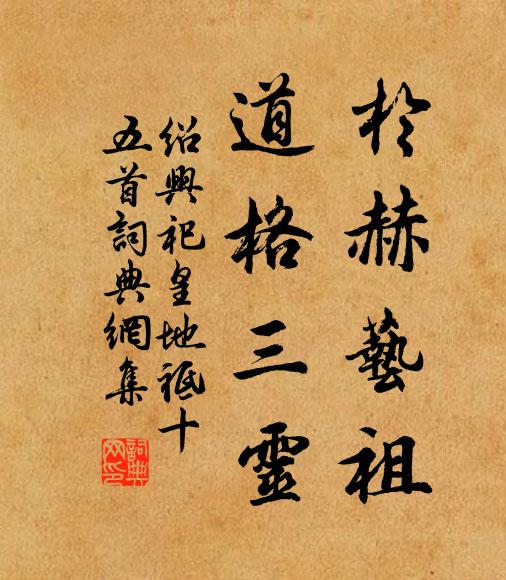 於赫藝祖
道格三靈
紹興祀皇地祗十
五首詞典網集
詞典
网印